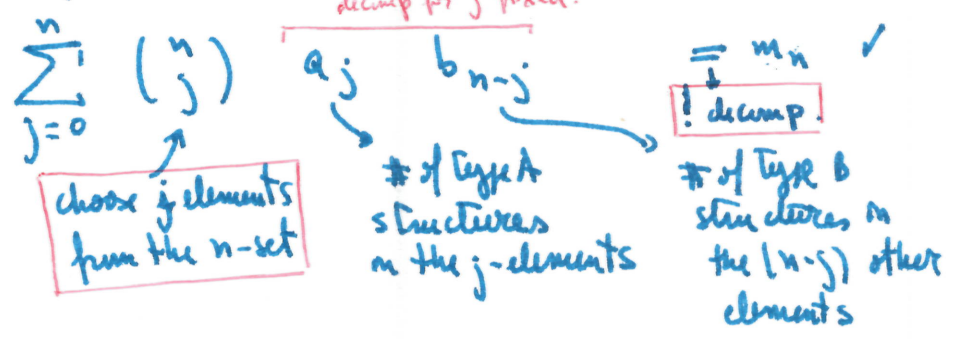 decomp for j fixed.
n
∑ (n j) a_j b_{n-j} = m_n ✓
j=0
! decomp.
choose j elements
from the n-set
# of Type A
structures
on the j-elements
# of Type B
structures on
the (n-j) other
elements